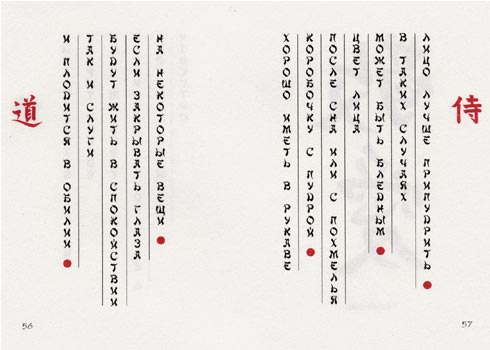 道
И ПЛОДИТСЯ В ОБИЛИИ
ТАК И СЛУГИ
БУДУТ ЖИТЬ В СПОКОЙСТВИИ
ЕСЛИ ЗАКРЫВАТЬ ГЛАЗА
НА НЕКОТОРЫЕ ВЕЩИ
56
ХОРОШО ИМЕТЬ В РУКАВЕ
КОРОБОЧКУ С ПУДРОЙ
ПОСЛЕ СНА ИЛИ С ПОХМЕЛЬЯ
ЦВЕТ ЛИЦА
МОЖЕТ БЫТЬ БЛЕДНЫМ
В ТАКИХ СЛУЧАЯХ
ЛИЦО ЛУЧШЕ ПРИПУДРИТЬ
侍
57